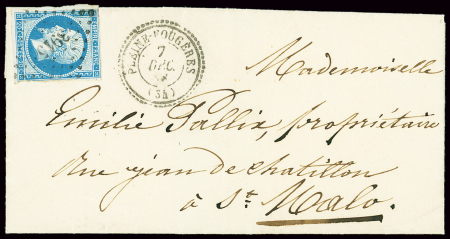 PLEINE-FOUGÈRES
7
DEC.
(34)
Mademoiselle
Emilie Pallix, propriétaire
rue jean de chatillon
à St Malo.